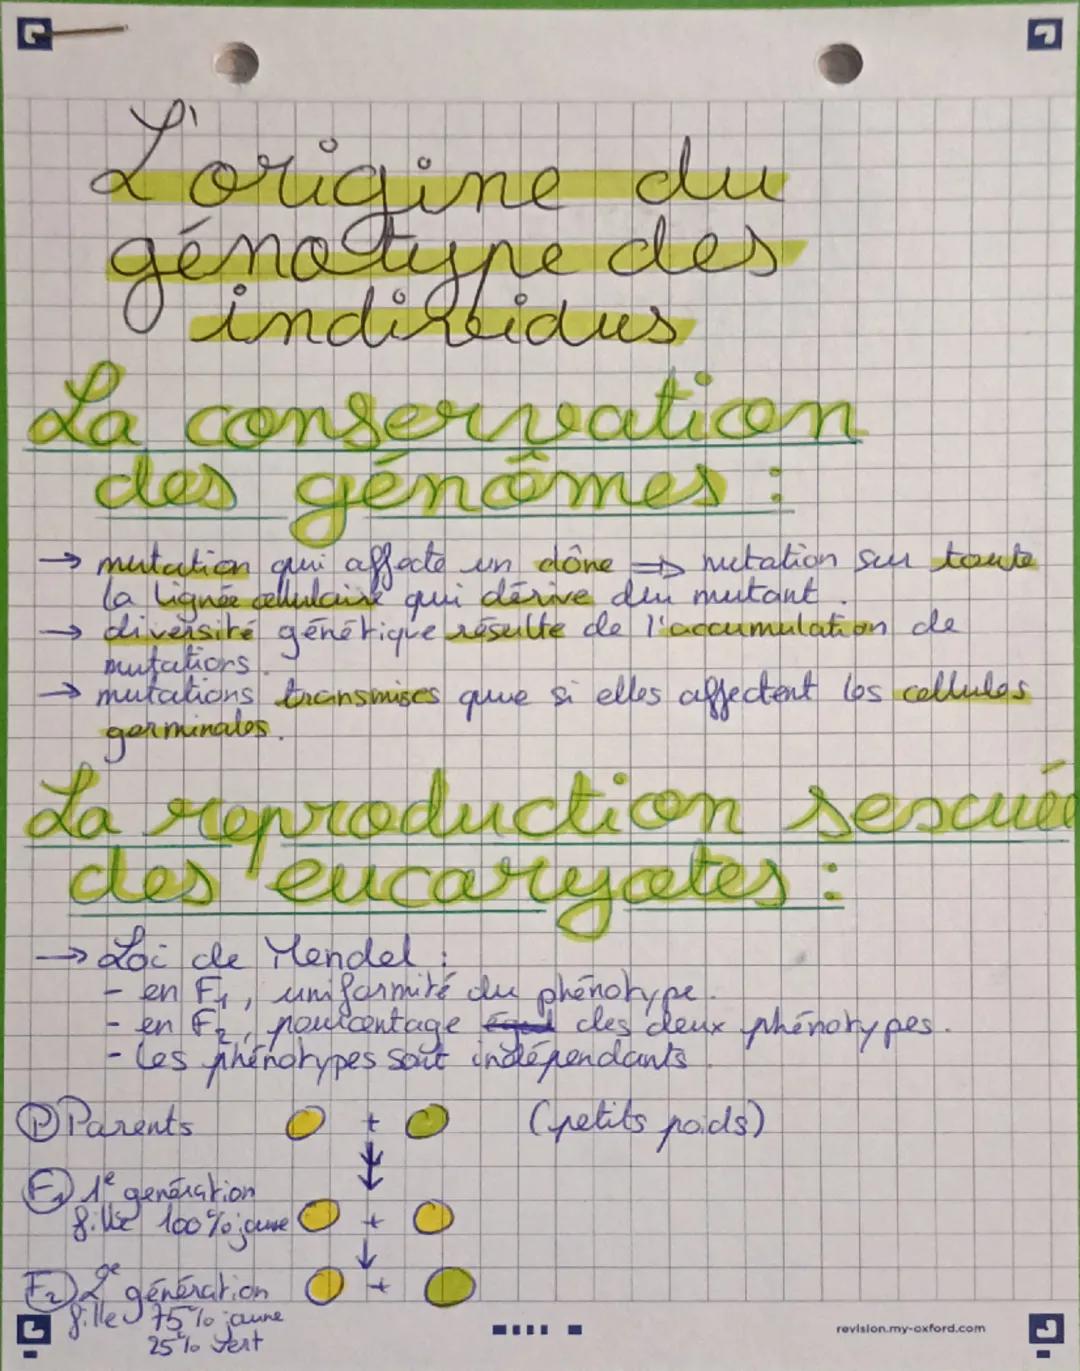 L'origine du
génotype des
individus
La conservation
des génômes :
→ mutation qui affecte un clône ⇒ mutation sur toute
la lignée cellulaire qui dérive du mutant.
→ diversité génétique résulte de l'accumulation de
mutations.
→ mutations transmises que si elles affectent les cellules
germinales.
La reproduction sexuée
des eucaryotes :
→ Loi de Mendel :
- en F1, uniformité du phénotype.
- en F2, pourcentage des deux phénotypes.
- les phénotypes sont indépendants.
P Parents + (petits poids)
F1 1e génération
fille 100% jaune +
F2 2e génération +
fille 75% jaune
25% vert
revision.my-oxford.com